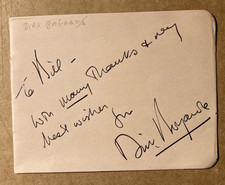 DIRK BOGARDE
To Bill -
With many Thanks & very
best wishes from
Dirk Bogarde